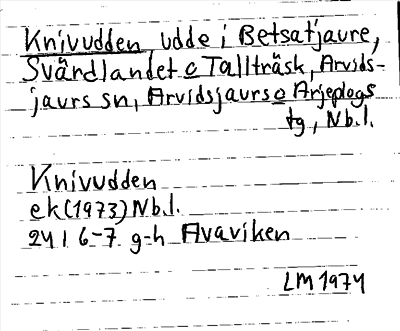 Knivudden, udde i Betsatjaure,
Svärdlandet o Tallträsk, Arvids-
jaurs sn, Arvidsjaurs o Arjeplogs
tg, Nb.l.
Knivudden
ek (1973) Nb.l.
24 I 6-7 g-h Avaviken
LM 1974